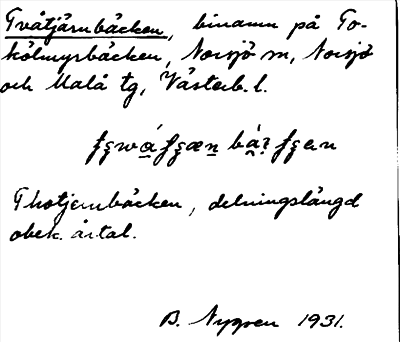 Tvåtjärnbäcken, binamn på To-
kölmyrbäcken, Norsjö sn, Norsjö
och Malå tg, Västerb. l.
Thotjernbäcken, delningslängd
obek. årtal.
B. Nygren 1931.